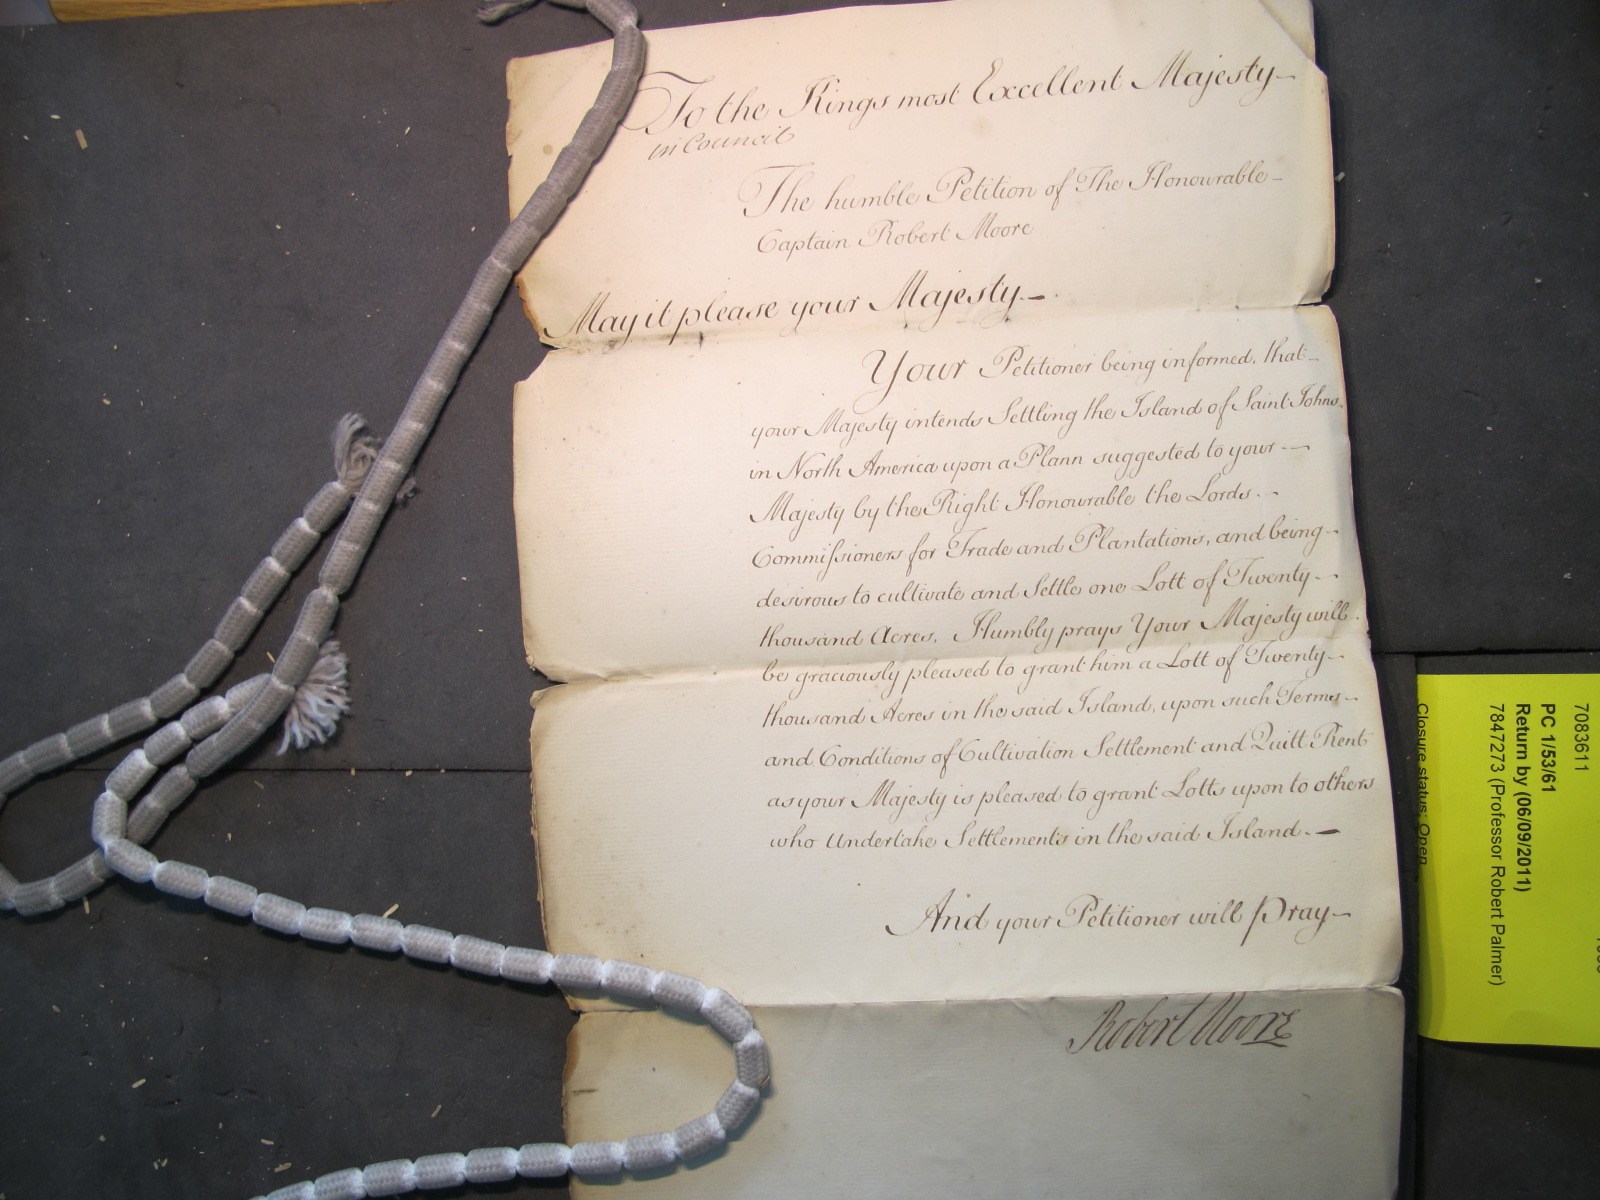 To the Kings most Excellent Majesty
in Council
The humble Petition of The Honourable
Captain Robert Moore
May it please your Majesty
Your Petitioner being informed, that
your Majesty intends Settling the Island of Saint Johns
in North America upon a Plann suggested to your
Majesty by the Right Honourable the Lords
Commissioners for Trade and Plantations, and being
desirous to cultivate and Settle one Lott of Twenty
thousand Acres, Humbly prays Your Majesty will
be graciously pleased to grant him a Lott of Twenty
thousand Acres in the said Island, upon such Terms
and Conditions of Cultivation Settlement and Quitt Rent
as your Majesty is pleased to grant Lotts upon to others
who Undertake Settlements in the said Island.
And your Petitioner will Pray
Robert Moore
7083611
PC 1/53/61
Return by (06/09/2011)
7847273 (Professor Robert Palmer)
Closure status: Open